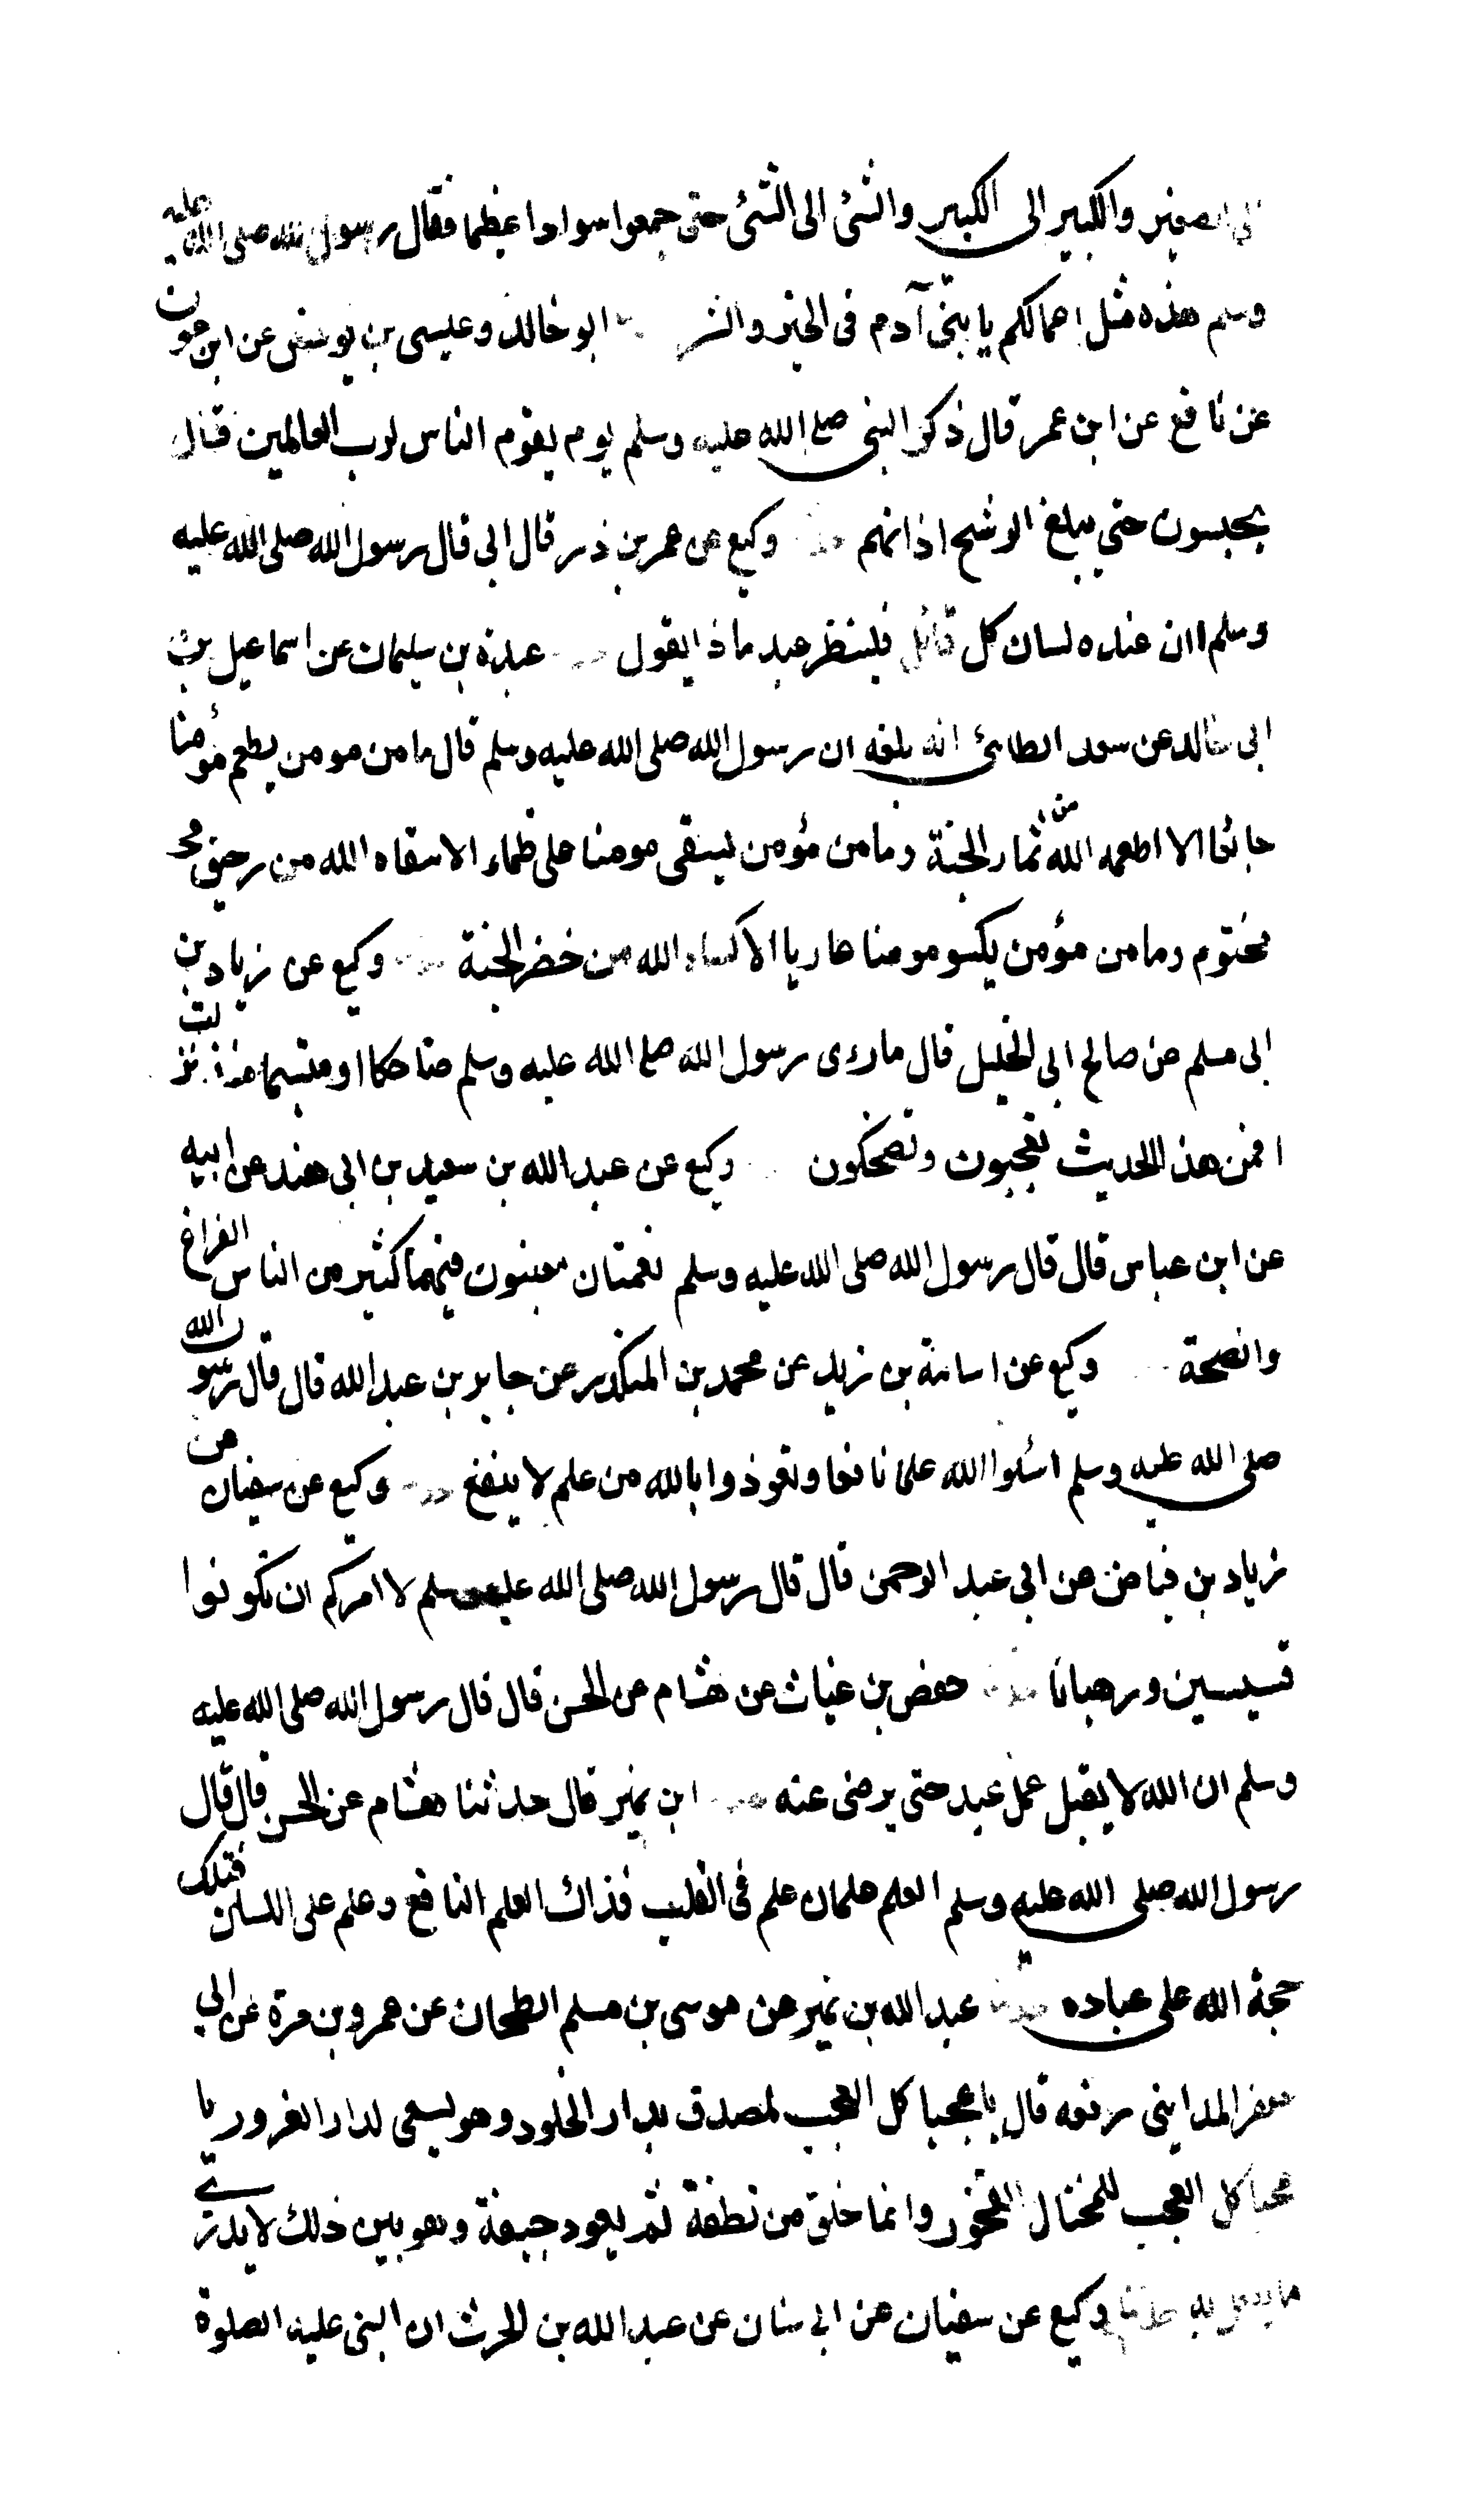 الى الصغير والكبير الى الكبير والشئ الى الشئ حتى جمعوا سوادا عظيما فقال رسول الله صلى الله عليه
وسلم هذه مثل اعمالكم يا بنى آدم فى الخير والشر ابو خالد وعيسى بن يونس عن ابن عون
عن نافع عن ابن عمر قال ذكر النبى صلى الله عليه وسلم يوم يقوم الناس لرب العالمين قال
يحبسون حتى يبلغ الرشح اذانهم حدثنا وكيع عن عمر بن ذر قال ابى قال رسول الله صلى الله عليه
وسلم ان عنده لسان كل قائل فلينظر عبد ماذا يقول حدثنا عبدة بن سليمان عن اسماعيل بن
ابى خالد عن سعد الطائى انه بلغه ان رسول الله صلى الله عليه وسلم قال ما من مومن يطعم مؤمنا
جائعا الا اطعمه الله من ثمار الجنة وما من مؤمن يسقى مومنا على ظماء الا سقاه الله من رحيق
مختوم وما من مؤمن يكسو مومنا عاريا الا كساه الله من خضر الجنة حدثنا وكيع عن زياد بن
ابى مسلم عن صالح ابى الخليل قال ما رءى رسول الله صلى الله عليه وسلم ضاحكا او متبسما منذ نزلت
افمن هذا الحديث تعجبون وتضحكون وكيع عن عبد الله بن سعيد بن ابى هند عن ابيه
عن ابن عباس قال قال رسول الله صلى الله عليه وسلم نعمتان مغبنون فيهما كثير من الناس الفراغ
والصحة وكيع عن اسامة بن زيد عن محمد بن المنكدر عن جابر بن عبد الله قال قال رسول الله
صلى الله عليه وسلم اسئلوا الله علما نافعا وتعوذوا بالله من علم لا ينفع حدثنا وكيع عن سفيان عن
زياد بن فياض عن ابى عبد الرحمن قال قال رسول الله صلى الله عليه وسلم لا امركم ان تكونوا
قسيسين ورهبانا حدثنا حفص بن غياث عن هشام عن الحسن قال قال رسول الله صلى الله عليه
وسلم ان الله لا يقبل عمل عبد حتى يرضى عنه حدثنا ابن نمير قال حدثنا هشام عن الحسن قال قال
رسول الله صلى الله عليه وسلم العلم علمان علم فى القلب فذاك العلم النافع وعلم على اللسان فتلك
حجة الله على عباده حدثنا عبد الله بن نمير عن موسى بن مسلم الطحان عن عمرو بن مرة عن ابى
جعفر المداينى رفعه قال يا عجبا كل العجب لمصدق بدار الخلود وهو يسعى لدار الغرور يا
عجبا كل العجب للمختال الفخور وانما خلق من نطفة ثم يعود جيفة وهو بين ذلك لا يدرى
ما يفعل به حدثنا وكيع عن سفيان عن ابى سنان عن عبد الله بن الحرث ان النبى عليه الصلوة